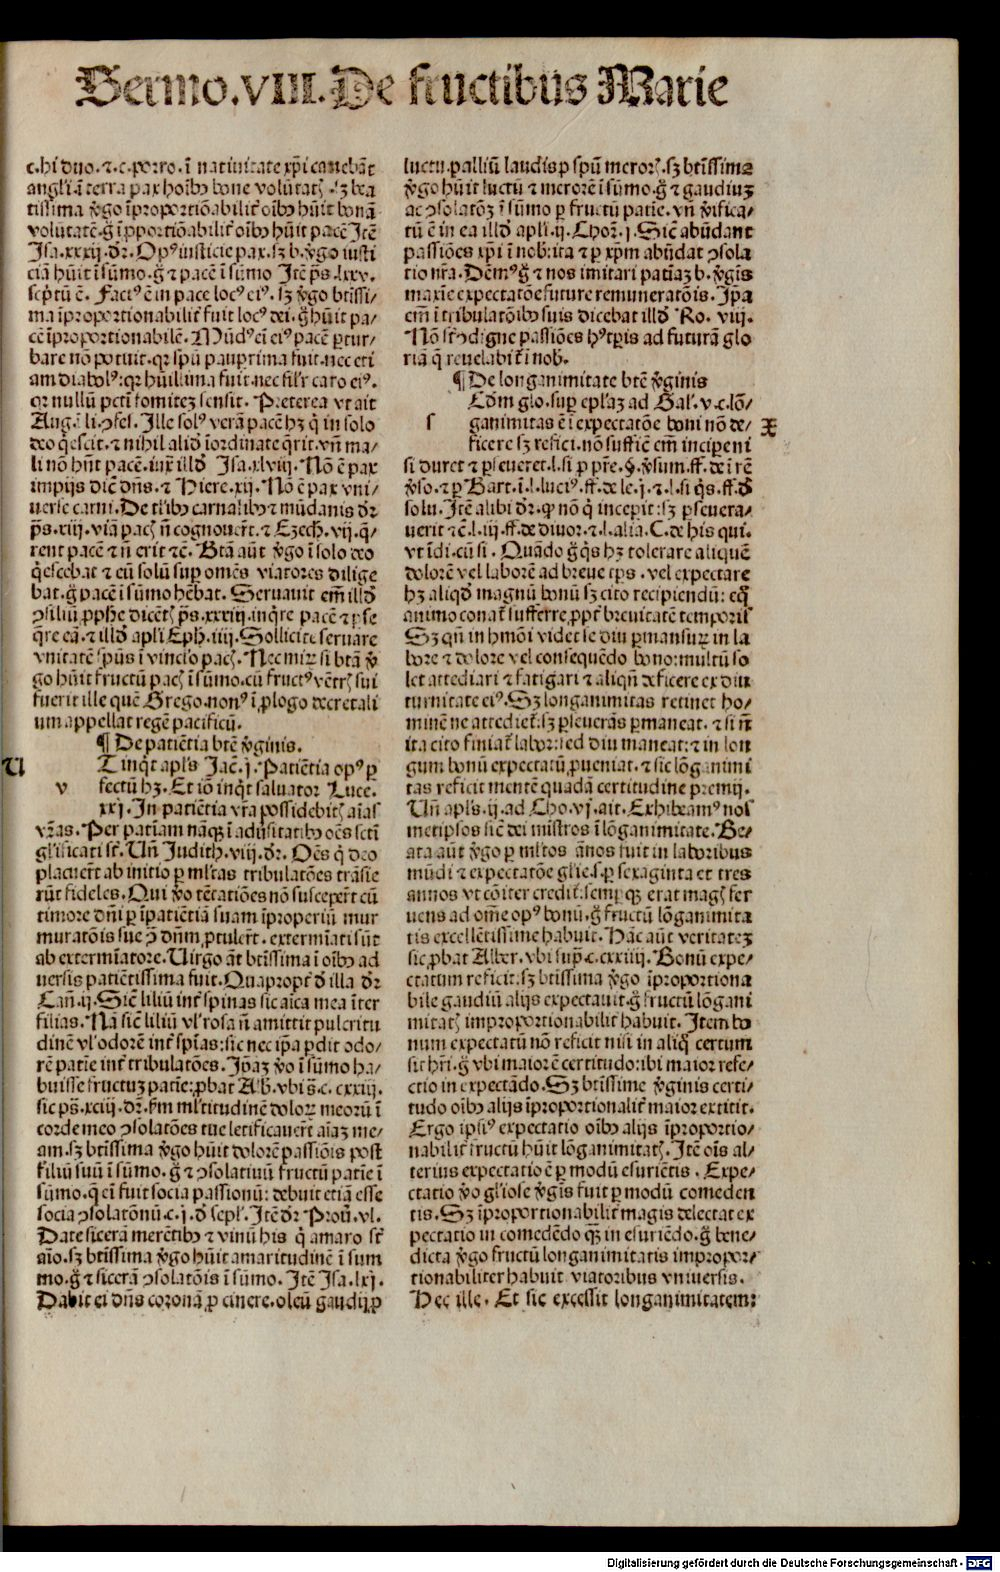 Sermo.VIII.De fructibus Marie
c.hi duo.⁊.c.porro.ī natiuitate xp̄i canebāt
angli ī terra pax hoībꝰ bone volūtatꝭ.sꝫ bea
tissima v̓go īproportiōabilit̄ oībꝰ hūit bonā
volūtatē.g̊ īproportiōabilit̄ hūit pacē Itē
Isa.xxxij.dr̄.Opꝰ iusticie pax.sꝫ b.v̓go iusti
ciā hūit ī sūmo.g̊ ⁊ pacē ī sūmo Itē p̄s.lxxv.
scptū ē. Factꝰ ē in pace locꝰ eiꝰ. sꝫ v̓go btissi/
ma īproportionabilit̄ fuit locꝰ dei.g̊ hūit pa/
cē īproportionabilē. Mūdꝰ ei eiꝰ pacē ꝑtur/
bare nō potuit.qꝛ spū pauꝑrima fuit.nec eti
am diabolꝰ:qꝛ hūillima fuit.nec fil'r caro eiꝰ.
qꝛ nullū pctī fomitez sensit. Preterea vt ait
Aug.li.ꝯfes. Ille solꝰ verā pacē hꝫ q̇ in solo
deo q̇escit.⁊ nihil aliđ iordinate q̄rit.vn̄ ma/
li nō hn̄t pacē.iux̄ illđ Isa.xlviij. Nō ē pax
impijs dic̄ dn̄s.⁊ Hiere.xij. Nō ē pax vni/
uerse carni.De tal'ibꝰ carnalibꝰ ⁊ mūdanis dr̄
p̄s.xiij.viā pacꝭ n̄ cognouer̄t.⁊ Ezech.vij.q̄/
rent pacē ⁊ n̄ erit ⁊c̄. Btā aūt v̓go ī solo deo
q̇escebat ⁊ eū solū suꝑ omēs viatores dilige
bat.g̊ pacē ī sūmo hēbat. Seruauit em̄ illđ
ꝯsiliū ꝓphe dicētꝭ p̄s.xxxiij.inq̇re pacē ⁊ ꝑse
q̄re eā.⁊ illđ apl'i Eph.iiij.Sollicite seruare
vnitatē spūs ī vinclo pacꝭ. Nec miꝝ si btā v̓
go hūit fructū pacꝭ ī sūmo.cū fructꝰ vētrꝭ sui
fuerit ille quē Grego.nonꝰ ī ꝓlogo decretali
um appellat regē pacificū.
¶ De patiētia btē v̓ginis.
U
T inq̇t apl's Jac̄.j. Patiētia opꝰ ꝑ
v fectū hꝫ. Et iō inq̇t saluator Luce.
xxj.In patiētia vr̄a possidebitꝭ aīas
vr̄as. Per patiam nāqꝫ ī aduersitatibꝰ oēs sctī
gl'ificati st̄. Vn̄ Judith.viij.dr̄. Oēs q̇ deo
placuer̄t ab initio ꝑ ml'tas tribulatōes trāsie
rūt fideles. Qui v̓o tētatiōes nō susceper̄t cū
timore dn̄i ꝑ īpatiētiā suam īproperiū mur
muratōis sue ꝯ̄ dn̄m ꝓtuler̄t.extermīati sūt
ab extermīatore. Uirgo āt btissima ī oībꝰ ad
uersis patiētissima fuit. Quaproptꝰ đ illa dr̄
Can̄.ij. Sic̄ liliū int̄ spinas sic aīca mea īter
filias. Nā sic̄ liliū vl' rosa n̄ amittit pulcritu
dinē vl' odorē int̄ spīas:sic nec ip̄a ꝑdit odo/
rē patie int̄ tribulatōes. Ip̄az v̓o ī sūmo ha/
buisse fructuꝫ patie:ꝓbat Alb. vbi s̄.c.cxxiij.
sic ps̄.xciij.dr̄. Fm ml'titudinē doloꝝ meoꝝ ī
corde meo ꝯsolatōes tue letificauer̄t aīaz me/
am.sꝫ btissima v̓go hūit dolorē passiōis post
filiū suū ī sūmo.g̊ ⁊ ꝯsolatiuū fructū patie ī
sūmo.q̄ ei fuit socia passionū: debuit etiā esse
socia ꝯsolatōnū.c.j.đ sepl'. Itē dr̄ Prou̓.vl.
Date sicera merētibꝰ ⁊ vinū his q̇ amaro st̄
aīo.sꝫ btissima v̓go hūit amaritudinē ī sum
mo.g̊ ⁊ sicerā ꝯsolatōis ī sūmo. Itē Isa.lxj.
Dabit ei dn̄s coronā ꝓ cinere.oleū gaudij ꝓ
luctu.palliū laudis ꝓ spū merorꝭ.sꝫ btissima
v̓go hūit luctū ⁊ merorē ī sūmo.g̊ ⁊ gaudiuꝫ
ac ꝯsolatōꝫ ī sūmo ꝑ fructū patie. vn̄ v̓ifica/
tū ē in ea illđ apl'i.ij.Chor.j. Sic̄ abūdant
passiōes xp̄i ī nob̄:ita ⁊ ꝑ xp̄m abūdat ꝯsola
tio nr̄a. Dēmꝰ g̊ ⁊ nos imitari patiaꝫ b.v̓gīs
maxīe expectatōe future remuneratōis. Ip̄a
em̄ ī tribulatōibꝰ suis dicebat illđ Ro. viij.
Nō st̄ ꝯdigne passiōes hꝰ tꝑis ad futurā glo
riā q̄ reuelabit̄ ī nob.
¶ De longanimitate btē v̓ginis
Edm̄ glo.suꝑ epl'aꝫ ad Gal'.v.c.lō/
s ganimitas ē ī expectatōe boni nō de/ X
ficere sꝫ refici.nō suffic̄ em̄ inciꝑe ni
si duret ⁊ ꝑseueret.l.si ꝑ pr̄e.§.v̓sum.ff.de ī rē
v̓so.⁊ ꝑ Bart.ī.l.luciꝰ.ff.de le.j.⁊.l.si q̇s.ff.đ
solu. Itē alibi dr̄.ꝙ nō q̇ inceꝑit:sꝫ ꝑseuera/
uerit ⁊c̄.l.iij.ff.de diuor.⁊.l.alia.C.de his qui.
vt īdi.cū si. Quādo g̊ q̇s hꝫ tolerare aliquē
dolorē vel laborē ad breue tp̄s.vel expectare
hꝫ aliqđ magnū bonū sꝫ cito recipiendū: eq̊
animo conat̄ sufferre ꝓpt̄ breuitatē temporis
Sꝫ qn̄ in hmōi videt se diu ꝑmansuꝝ in la
bore ⁊ dolore vel consequēdo bono:multū so
let attediari ⁊ fatigari ⁊ aliqn̄ deficere ex diu
turnitate eiꝰ. Sꝫ longanimitas retinet ho/
minē ne attediet̄.sꝫ ꝑseuerās ꝑmaneat.⁊ si n̄
ita cito finiat̄ labor:sed diu maneat:⁊ in lon
gum bonū expectatū ꝓueniat.⁊ sic lōganimi
tas reficit mentē quadā certitudine premij.
Vn̄ apl's.ij.ad Cho.vj.ait. Exhibeamꝰ nos
metipsos sic̄ dei mīstros ī lōganimitate. Be/
ata aūt v̓go ꝑ ml'tos ānos fuit in laboribus
mūdi ⁊ expectatōe gl'ie.s.ꝑ sexaginta et tres
annos vt cōiter credit̄:semꝑ qꝫ erat magꝭ fer
uens ad om̄e opꝰ bonū.g̊ fructū lōganimita
tis excellētissime habuit. Hāc aūt veritateꝫ
sic ꝓbat Alber.vbi sup̄.c.cxxiiij. Bonū expe/
ctatum reficit:sꝫ btissima v̓go īproportiona
bile gaudiū alijs expectauit.g̊ fructū lōgani
mitatꝭ improportionabilit̄ habuit. Item bo
num expectatū nō reficit nisi in aliq̊ certum
sit hr̄i.g̊ vbi maior ē certitudo:ibi maior refe/
ctio in expectādo. Sꝫ btissime v̓ginis certi/
tudo oībꝰ alijs īproportionalit̄ maior extitit.
Ergo ipsiꝰ expectatio oībꝰ alijs īproportio/
nabilit̄ fructū hūit lōganimitatꝭ. Itē oīs al/
terius expectatio ē ꝑ modū esuriētis. Expe/
ctatio v̓o gl'iose v̓gīs fuit ꝑ modū comeden
tis. Sꝫ īproportionabilit̄ magis delectat ex
pectatio in comedēdo qꝫ in esuriēdo.g̊ bene/
dicta v̓go fructū longanimitatis impropor/
tionabiliter habuit viatoribus vniuersis.
Hec ille. Et sic excessit longanimitatem:
Digitalisierung gefördert durch die Deutsche Forschungsgemeinschaft - DFG